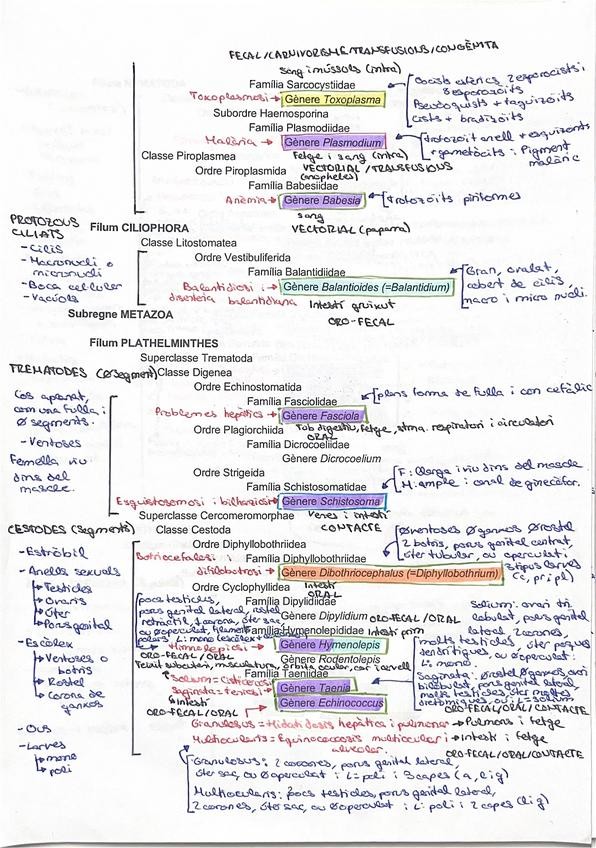 FECAL/CARNIVORISME/TRANSFUSIONS/CONGÈNITA
sang i mússols (intra)
Família Sarcocystiidae
Toxoplasmosi → Gènere Toxoplasma
Subordre Haemosporina
Família Plasmodiidae
Malària → Gènere Plasmodium
Classe Piroplasmea
Fetge i sang (intra)
Ordre Piroplasmida
VECTORIAL/TRANSFUSIONS
(anopheles)
Família Babesiidae
Anèmia → Gènere Babesia
sang
VECTORIAL (paparra)
Oocists esfèrics 2 esporocists i
8 esporozoïts
Pseudoquists + taquizoïts
cists + bradizoïts
trofozoït anell + esquizonts
+ gametòcits i Pigment
malàric
trofozoïts piriformes
PROTOZOUS
CILIATS
- Cilis
- Macronucli o
micronucli
- Boca cel·lular
- Vacúols
Fílum CILIOPHORA
Classe Litostomatea
Ordre Vestibuliferida
Família Balantidiidae
Balantidiosi i → Gènere Balantioides (=Balantidium)
disenteria balantidiana
Intestí gruixut
ORO-FECAL
Gran, ovalat,
cobert de cilis,
macro i micro nucli.
Subregne METAZOA
Fílum PLATHELMINTHES
Superclasse Trematoda
TREMATODES (Ø segment)
Classe Digenea
Ordre Echinostomatida
Família Fasciolidae
Problemes hepàtics → Gènere Fasciola
plans forma de fulla i con cefàlic
Ordre Plagiorchiida
Tub digestiu, fetge, stma. respiratori i circulatori
ORAL
Família Dicrocoeliidae
Gènere Dicrocoelium
Ordre Strigeida
Família Schistosomatidae
Esquistosomosi i bilharziosi → Gènere Schistosoma
Venes i intestí
CONTACTE
F: llarga i viu dins del mascle
M: ample i canal de ginecòfor.
Cos aplanat,
com una fulla i
Ø segments.
- Ventoses
Femella viu
dins del
mascle.
CESTODES (Segments)
- Estròbil
- Anells sexuals
Testicles
Ovaris
Úter
Porus genital
- Escòlex
Ventoses o
botris
Rostel
Corona de
ganxos
- Ous
- Larves
mono
poli
Superclasse Cercomeromorphae
Classe Cestoda
Ordre Diphyllobothriidea
Família Diphyllobothriidae
Botriocefalosi i
difilobotriosi → Gènere Dibothriocephalus (=Diphyllobothrium)
Intestí
ORAL
Ø ventoses Ø ganxos Ø rostel
2 botris, porus genital central,
úter tubular, ou operculat i
3 tipus larves
(c, pr i pl)
Ordre Cyclophyllidea
Família Dipylidiidae
Gènere Dipylidium
ORO-FECAL/ORAL
Família Hymenolepididae
Intestí prim
Himenolepiosi → Gènere Hymenolepis
ORO-FECAL/ORAL
Gènere Rodentolepis
Teixit subcutani, musculatura, òrbita ocular, cor i cervell
Família Taeniidae
Solium: Cisticercosi
Saginata: teniosi → Gènere Taenia
Intestí
ORO-FECAL/ORAL
Gènere Echinococcus
pocs testicles,
porus genital lateral, rostel
retràctil, 1 corona, úter sac,
Solium: ovari tri
lobulat, porus genital
lateral 2 corones,
molts testicles, úter poques
dendrítiques, ou Ø operculat i
L: mono.
Saginata: Ø rostel Ø ganxos, ovari
bilobulat, porus genital lateral,
molts testicles, úter moltes
ORO-FECAL/ORAL/CONTACTE
Granulosus = Hidatidosis hepàtica i pulmonar → Pulmons i fetge
Multilocularis = Equinococosis multilocular i → Intestí i fetge
alveolar.
ORO-FECAL/ORAL/CONTACTE
Granulosus: 2 corones, porus genital lateral,
úter sac, ou Ø operculat i L: poli i 3 capes (a, l i g)
Multilocularis: pocs testicles, porus genital lateral,
2 corones, úter sac, ou Ø operculat i L: poli i 2 capes (l i g)